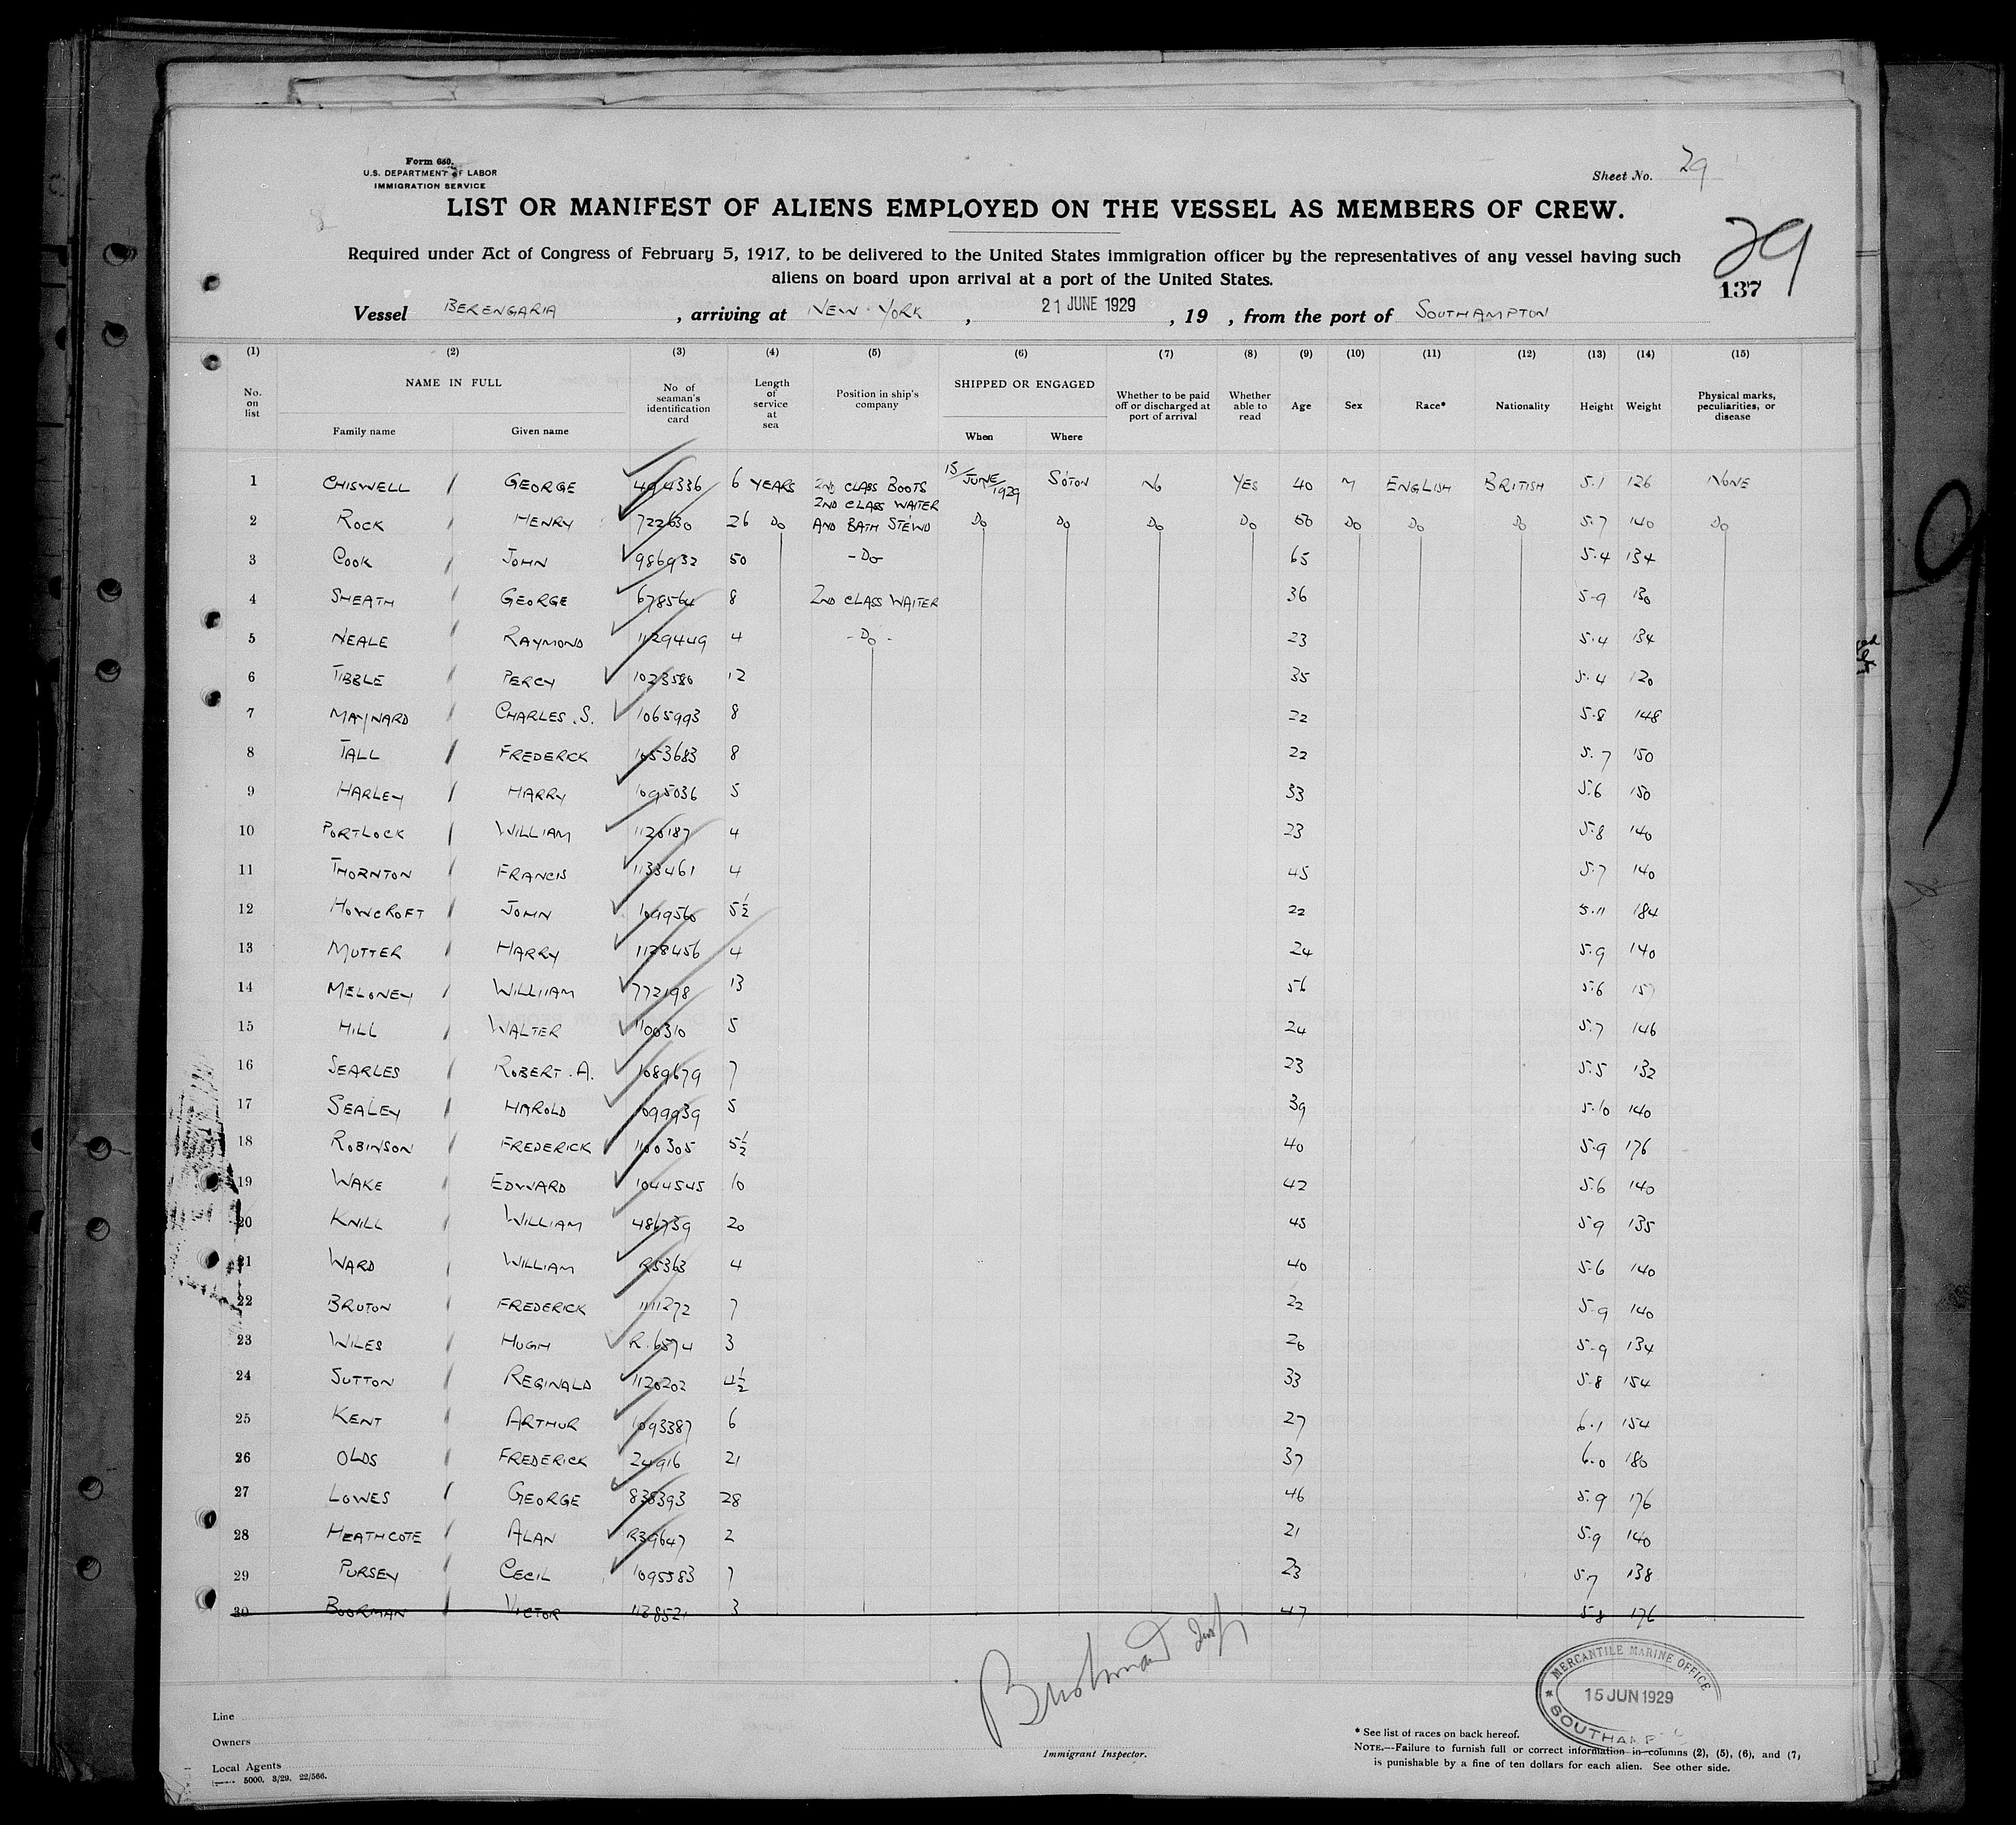 Form 680.
U.S. DEPARTMENT OF LABOR
IMMIGRATION SERVICE
Sheet No. 29
LIST OR MANIFEST OF ALIENS EMPLOYED ON THE VESSEL AS MEMBERS OF CREW.
29
Required under Act of Congress of February 5, 1917, to be delivered to the United States immigration officer by the representatives of any vessel having such
aliens on board upon arrival at a port of the United States.
137
Vessel BERENGARIA, arriving at NEW YORK, 21 JUNE 1929, 19 , from the port of SOUTHAMPTON
(1) (2) (3) (4) (5) (6) (7) (8) (9) (10) (11) (12) (13) (14) (15)
No. on list NAME IN FULL Family name Given name No of seaman's identification card Length of service at sea Position in ship's company SHIPPED OR ENGAGED When Where Whether to be paid off or discharged at port of arrival Whether able to read Age Sex Race* Nationality Height Weight Physical marks, peculiarities, or disease
1 CHISWELL / GEORGE 494336 6 YEARS 2ND CLASS BOOTS 15/JUNE/1929 S'OTON NO YES 40 M ENGLISH BRITISH 5.1 126 NONE
2 ROCK / HENRY 722630 26 DO 2ND CLASS WAITER AND BATH STEWD DO DO DO DO 50 DO DO DO 5.7 140 DO
3 COOK / JOHN 986932 50 -DO- 65 5.4 134
4 SHEATH / GEORGE 678564 8 2ND CLASS WAITER 36 5-9 130
5 NEALE / RAYMOND 1129449 4 -DO- 23 5.4 134
6 TIBBLE / PERCY 1023580 12 35 5.4 120
7 MAYNARD / CHARLES.S. 1065993 8 22 5.8 148
8 TALL / FREDERICK 1053683 8 22 5.7 150
9 HARLEY / HARRY 1095036 5 33 5.6 150
10 PORTLOCK / WILLIAM 1120187 4 23 5.8 140
11 THORNTON / FRANCIS 1133461 4 45 5.7 140
12 HOWCROFT / JOHN 1049560 5½ 22 5.11 184
13 MUTTER / HARRY 1128456 4 24 5.9 140
14 MELONEY / WILLIIAM 772198 13 56 5.6
15 HILL / WALTER 1100310 5 24 5.7 146
16 SEARLES / ROBERT.A. 1089679 7 23 5.5 132
17 SEALEY / HAROLD 1099939 5 39 5.10 140
18 ROBINSON / FREDERICK 1100305 5½ 40 5.9 176
19 WAKE / EDWARD 1044545 10 42 5.6 140
20 KNILL / WILLIAM 486739 20 45 5.9 135
21 WARD / WILLIAM R5363 4 40 5.6 140
22 BRUTON / FREDERICK 1111272 7 22 5.9 140
23 WILES / HUGH R.6574 3 26 5-9 134
24 SUTTON / REGINALD 1120202 4½ 33 5.8 154
25 KENT / ARTHUR 1093387 6 27 6.1 154
26 OLDS / FREDERICK 24916 21 37 6.0 180
27 LOWES / GEORGE 838393 28 46 5.9 176
28 HEATHCOTE / ALAN R39647 2 21 5.9 140
29 PURSEY / CECIL 1095583 7 23 5.7 138
30 BOORMAN / VICTOR 1128521 3 47 5.8 176
MERCANTILE MARINE OFFICE
15 JUN 1929
SOUTHAMP
Line
Owners
Local Agents
5000. 3/29. 22/566.
Immigrant Inspector.
* See list of races on back hereof.
NOTE.—Failure to furnish full or correct information in columns (2), (5), (6), and (7)
is punishable by a fine of ten dollars for each alien. See other side.